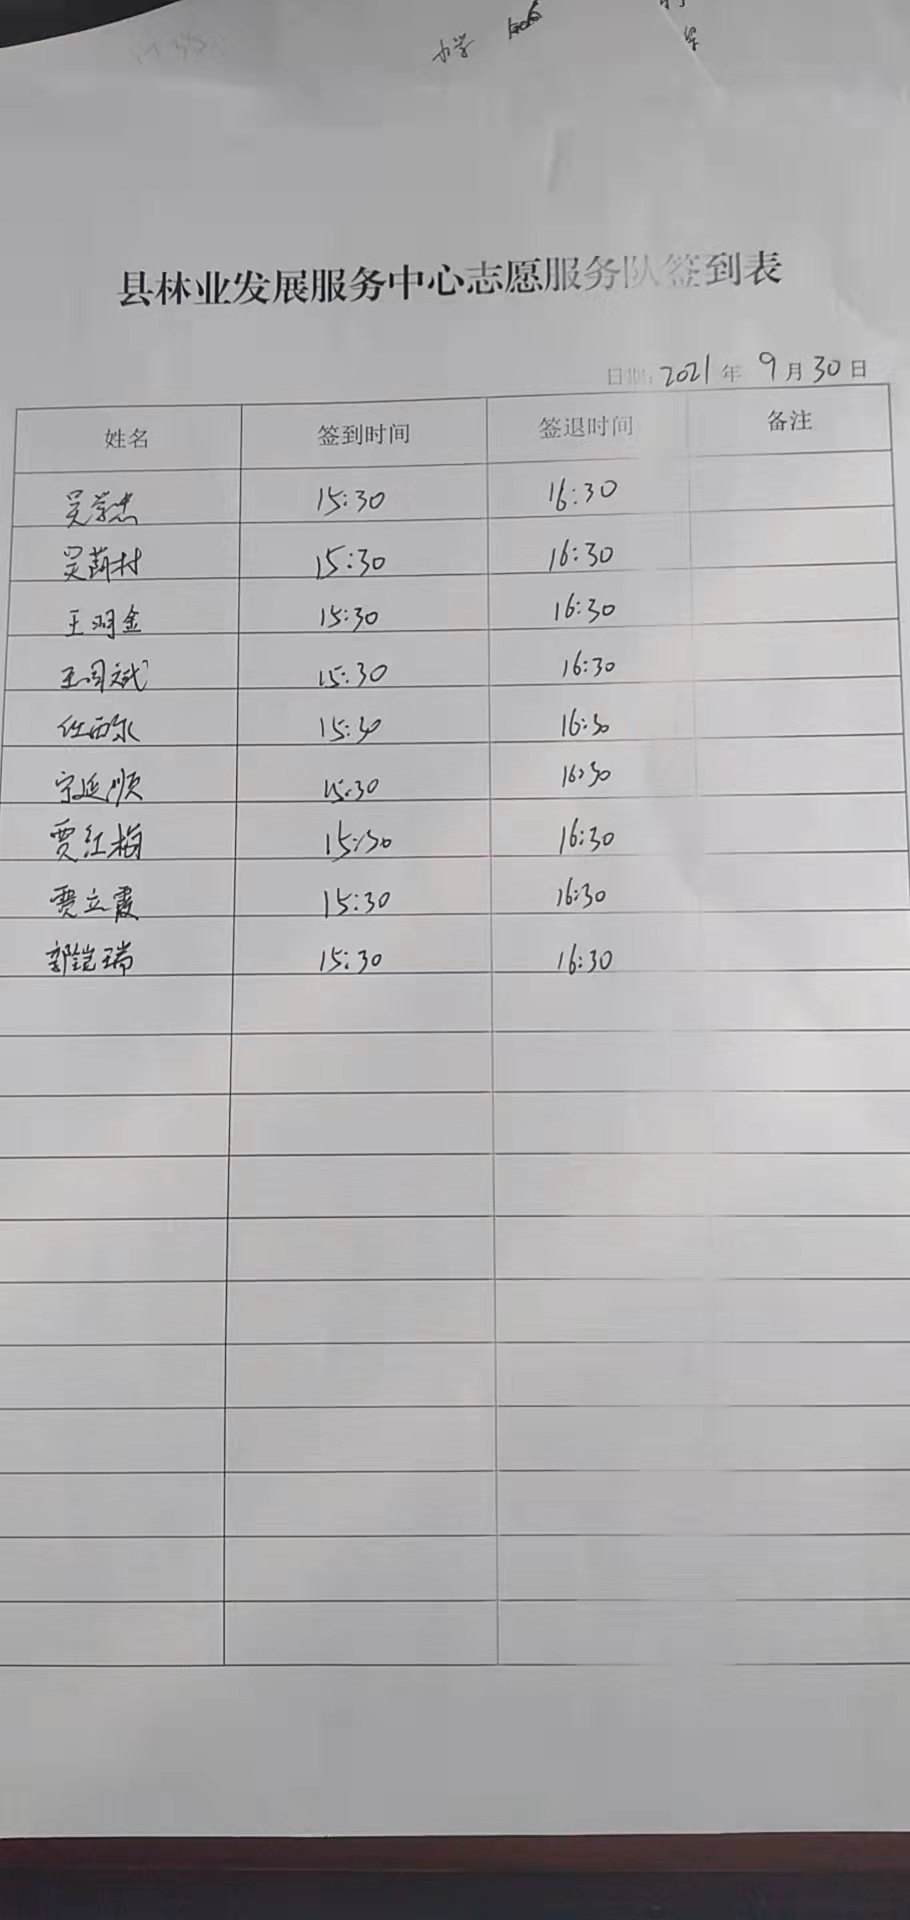 办学
县林业发展服务中心志愿服务队签到表
日期:2021年9月30日
姓名 签到时间 签退时间 备注
15:30 16:30
15:30 16:30
王明金 15:30 16:30
王同斌 15:30 16:30
任西永 15:30 16:30
宁延顺 15:30 16:30
贾红梅 15:30 16:30
贾立霞 15:30 16:30
郭铠瑞 15:30 16:30